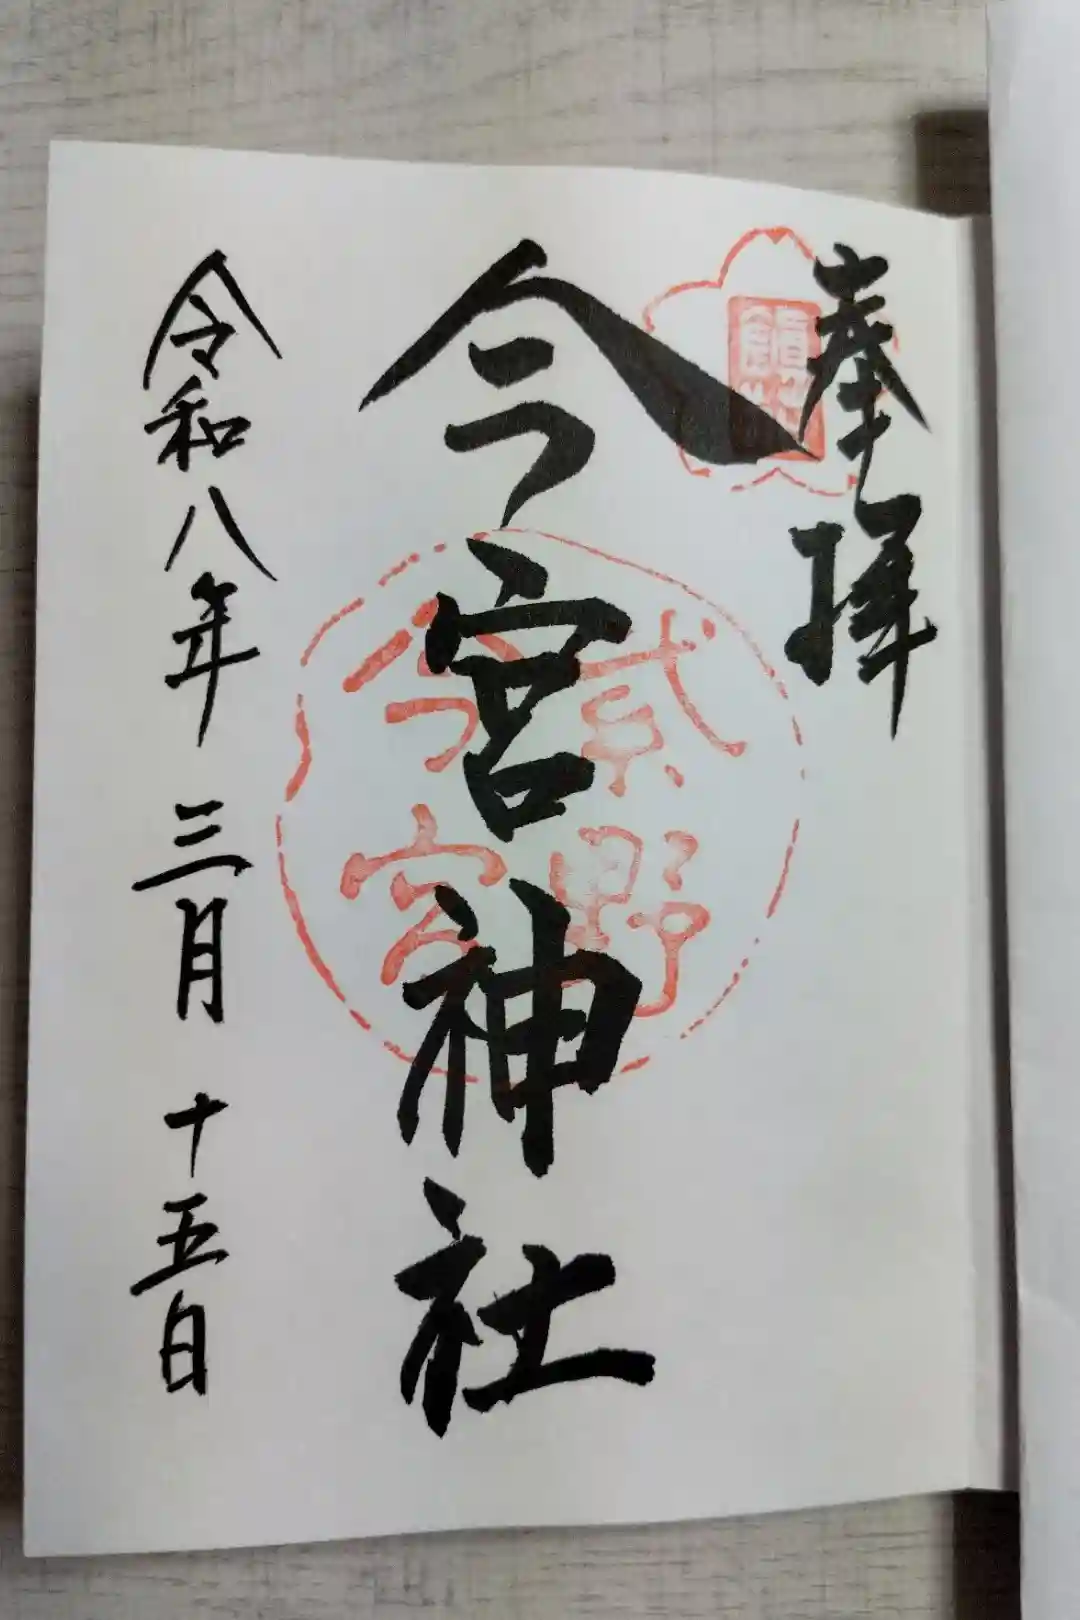 奉拝
今宮神社
紫野
今宮
令和八年三月十五日